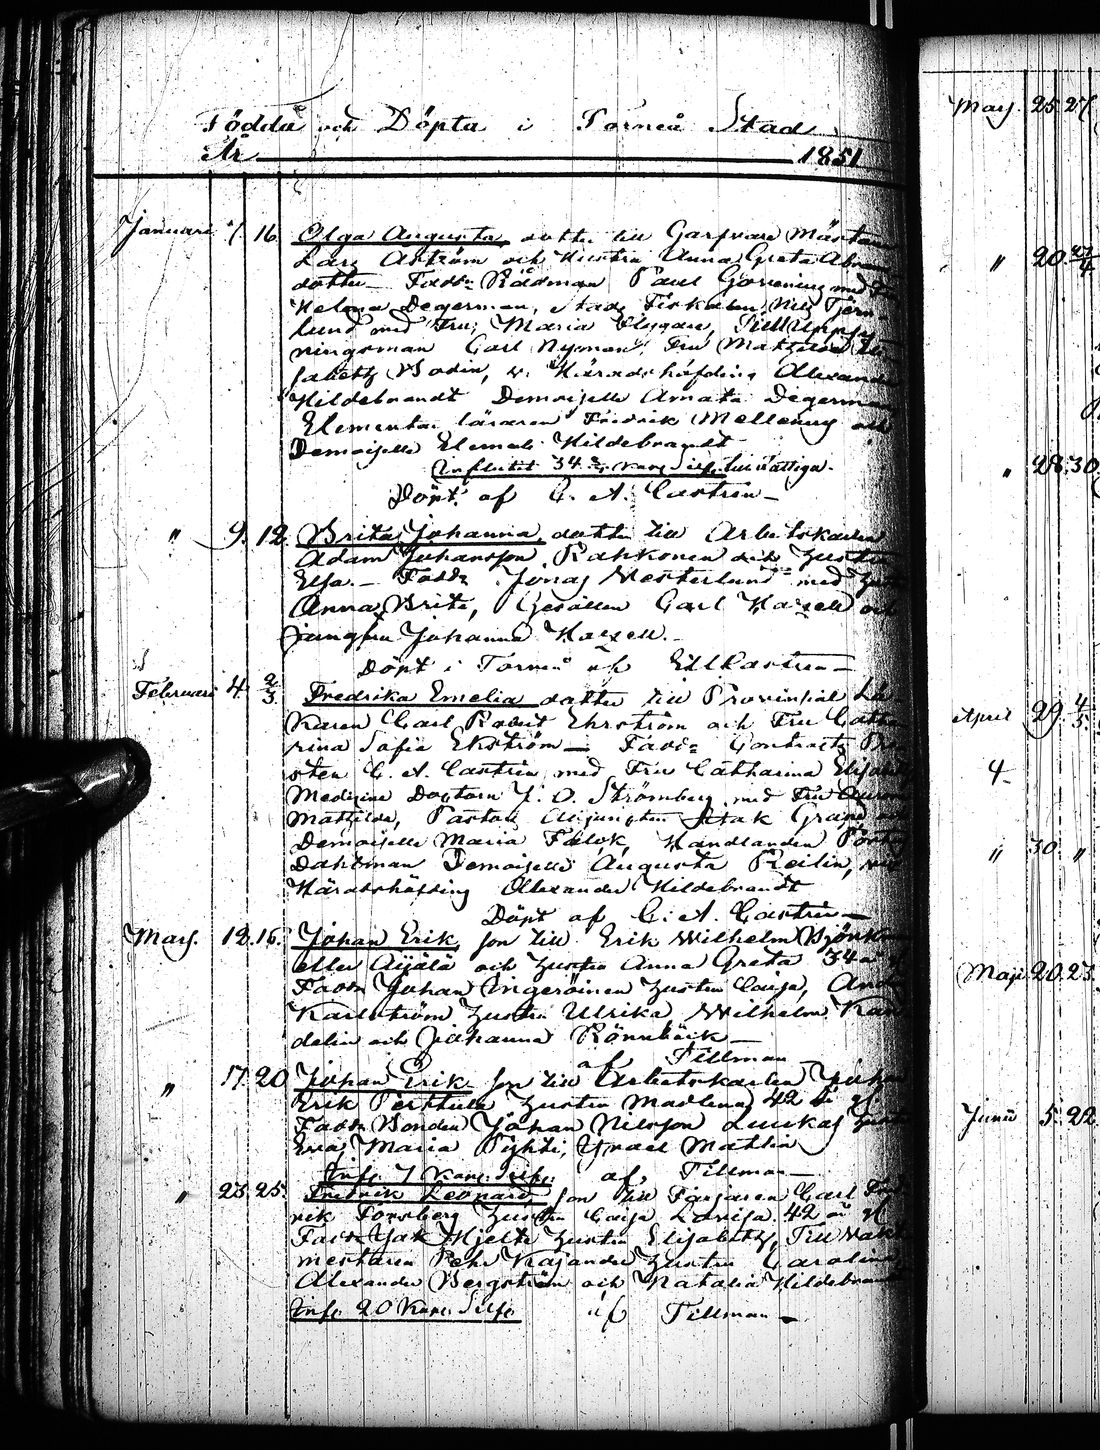 Födda och Döpta i Torneå Stad
År 1851
Januari 7. 16. Olga Augusta, dotter till Garfvare Mästaren
Lars Aström och Hustru Anna Greta Abra
dotter Fadd: Rådman Paul Görrening med Fru
Helena Degerman, Stads Fiskalen Nils Tjern
lund med Fru Maria Flygare, Tulluppsy
ningsman Carl Nyman, Fru Mathilda Eli
sabeth Bodin, v. Häradshöfding Alexander
Hildebrandt Demoiselle Amata Degerman
Elementar läraren Fredrik Mellenius och
Demoiselle Hildebrandt
Influtit 34 Kop. Silfr. till Fattiga.
Döpt af C. A. Castrén
" 9. 12. Brita Johanna, dotter till Arbetskarlen
Adam Johansson Rahkonen och hustru
Elsa. Fadd: Jonas Westerlund med hustru
Anna Brita, Gesällen Carl och
jungfru Johanna
Döpt i Torneå af Castrén
Februari 4. 2/3. Fredrika Emelia dotter till Provinsial Lä
karen Carl Robert Ehrström och Fru Catha
rina Sofia Ekström Fadd: Contracts Pro
sten C. A. Castrén med Fru Catharina Elisabet
Medicine Doctorn J. O. Strömberg med Fru Aurora
Mathilda, Pastors Adjungten Isak Grape och
Demoiselle Maria Falck, Handlanden
Dahlman Demoiselle Augusta Reilin, vice
Häradshöfding Alexander Hildebrandt
Döpt af C. A. Castrén
Mars. 12. 16. Johan Erik, son till Erik Wilhelm Björk
eller Äijälä och hustru Anna Greta 34 år gl
Faddr Johan Ingeröinen hustru Caisa, And
Karlström hustru Ulrika, Wilhelm Kan
delin och Johanna Rönnbäck
af Tillman
" 17. 20. Johan Erik son till Arbetskarlen Johan
Erik Perttula hustru Madlena 42 år gl.
Faddr Bonden Johan Nilsson Luukas hustru
Eva, Maria Pyhti, Israel Mathia
Infl. 7 Kop. Silfr. af Tillman
" 23. 25. Fredrik Leonard son till Färjaren Carl Fred
rik Forsberg hustru Caisa Lovisa 42 år gl
Faddr Isak Hjelte hustru Elisabeth, Tull Vakt
mestaren Pehr Kajander hustru Carolina,
Alexander Bergström och Natalia Hildebrandt
Infl. 20 Kop. Silfr. af Tillman
Mars. 25. 27.
" 20. 27/4
" 28. 30.
April 29. 4/5.
4
" 30. "
Maji 20. 23.
Junii 5. 22.